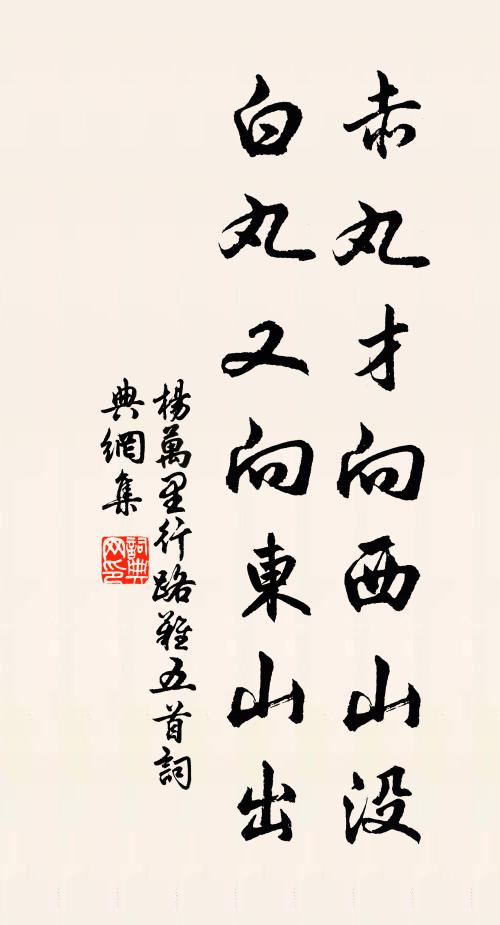 赤丸才向西山没
白丸又向東山出
楊萬里行路難五首詞
典網集
詞典
网印